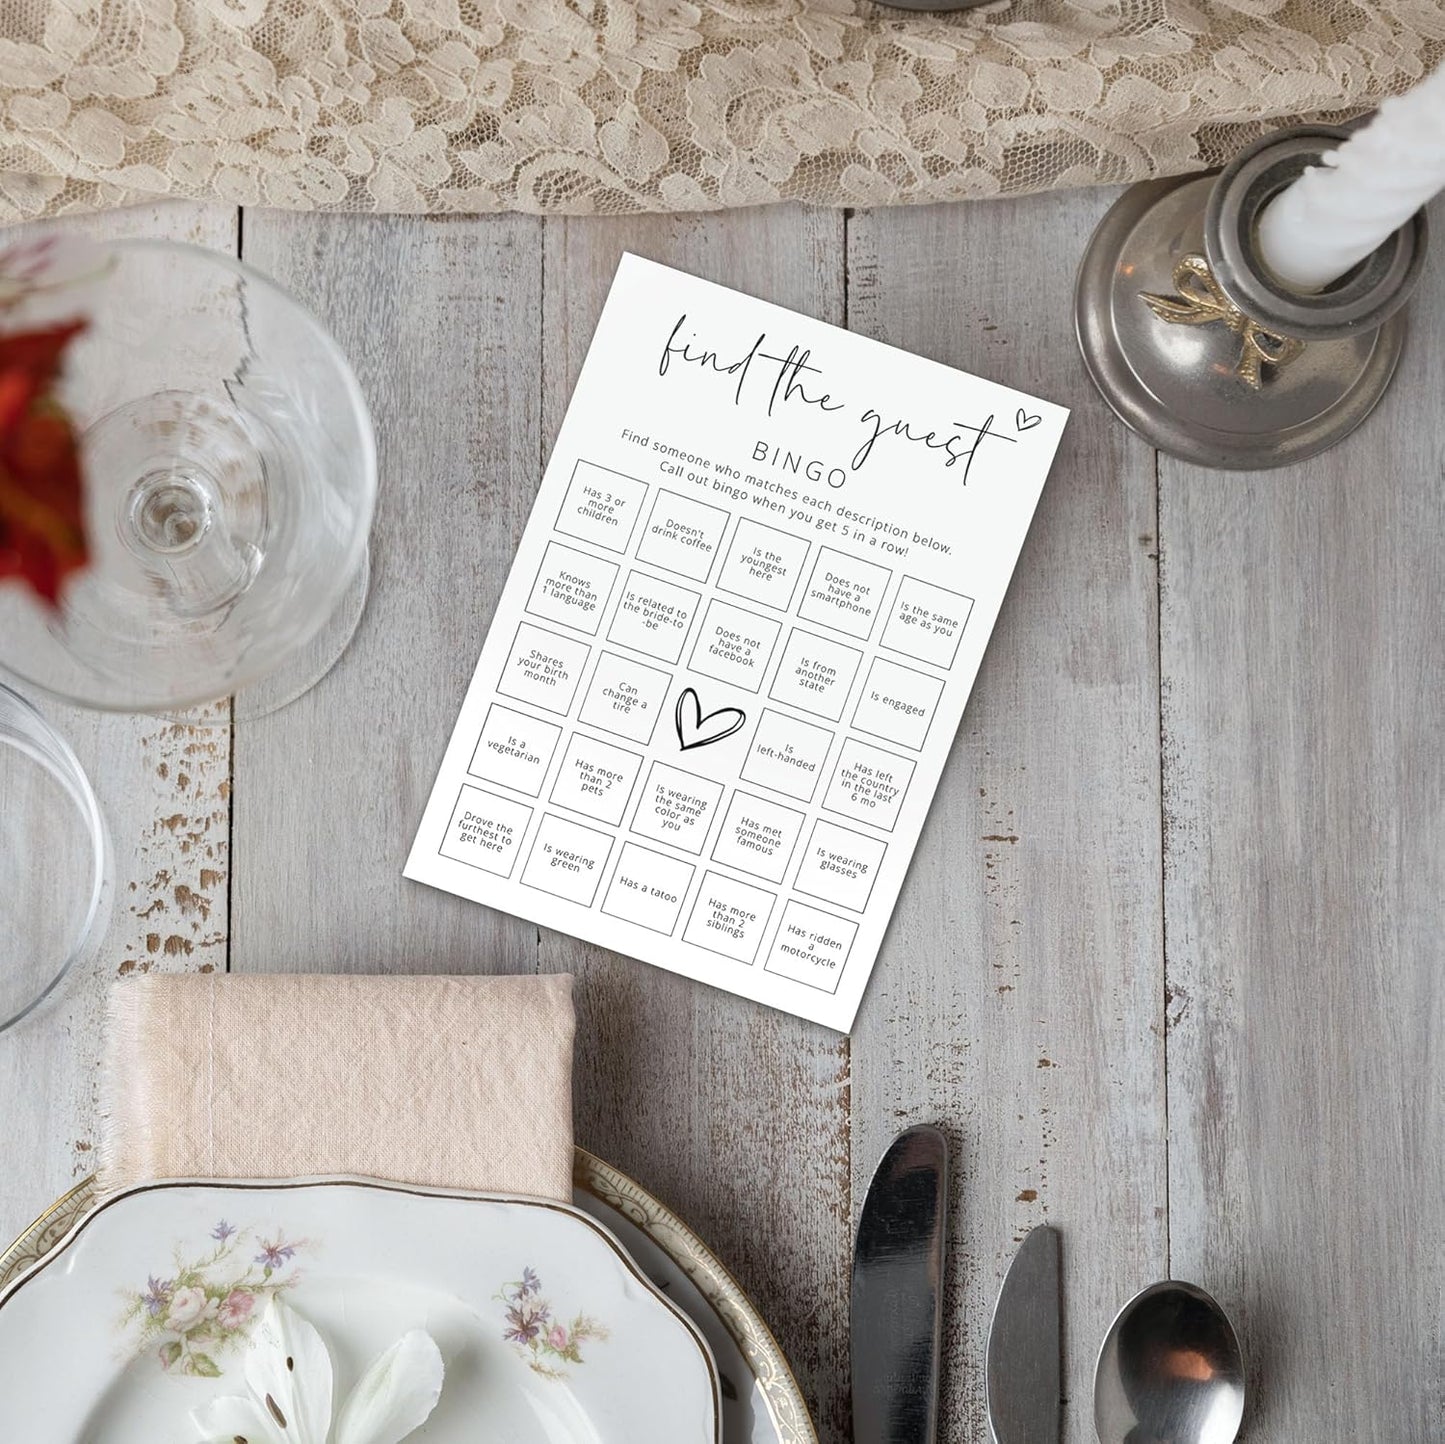 find the guest
BINGO
Find someone who matches each description below.
Call out bingo when you get 5 in a row!
Has 3 or
more
children
Doesn't
drink coffee
Is the
youngest
here
Does not
have a
smartphone
Is the same
age as you
Knows
more than
1 language
Is related to
the bride-to
-be
Does not
have a
facebook
Is from
another
state
Is engaged
Shares
your birth
month
Can
change a
tire
Is
left-handed
Has left
the country
in the last
6 mo
Is a
vegetarian
Has more
than 2
pets
Is wearing
the same
color as
you
Has met
someone
famous
Is wearing
glasses
Drove the
furthest to
get here
Is wearing
green
Has a tatoo
Has more
than 2
siblings
Has ridden
a
motorcycle